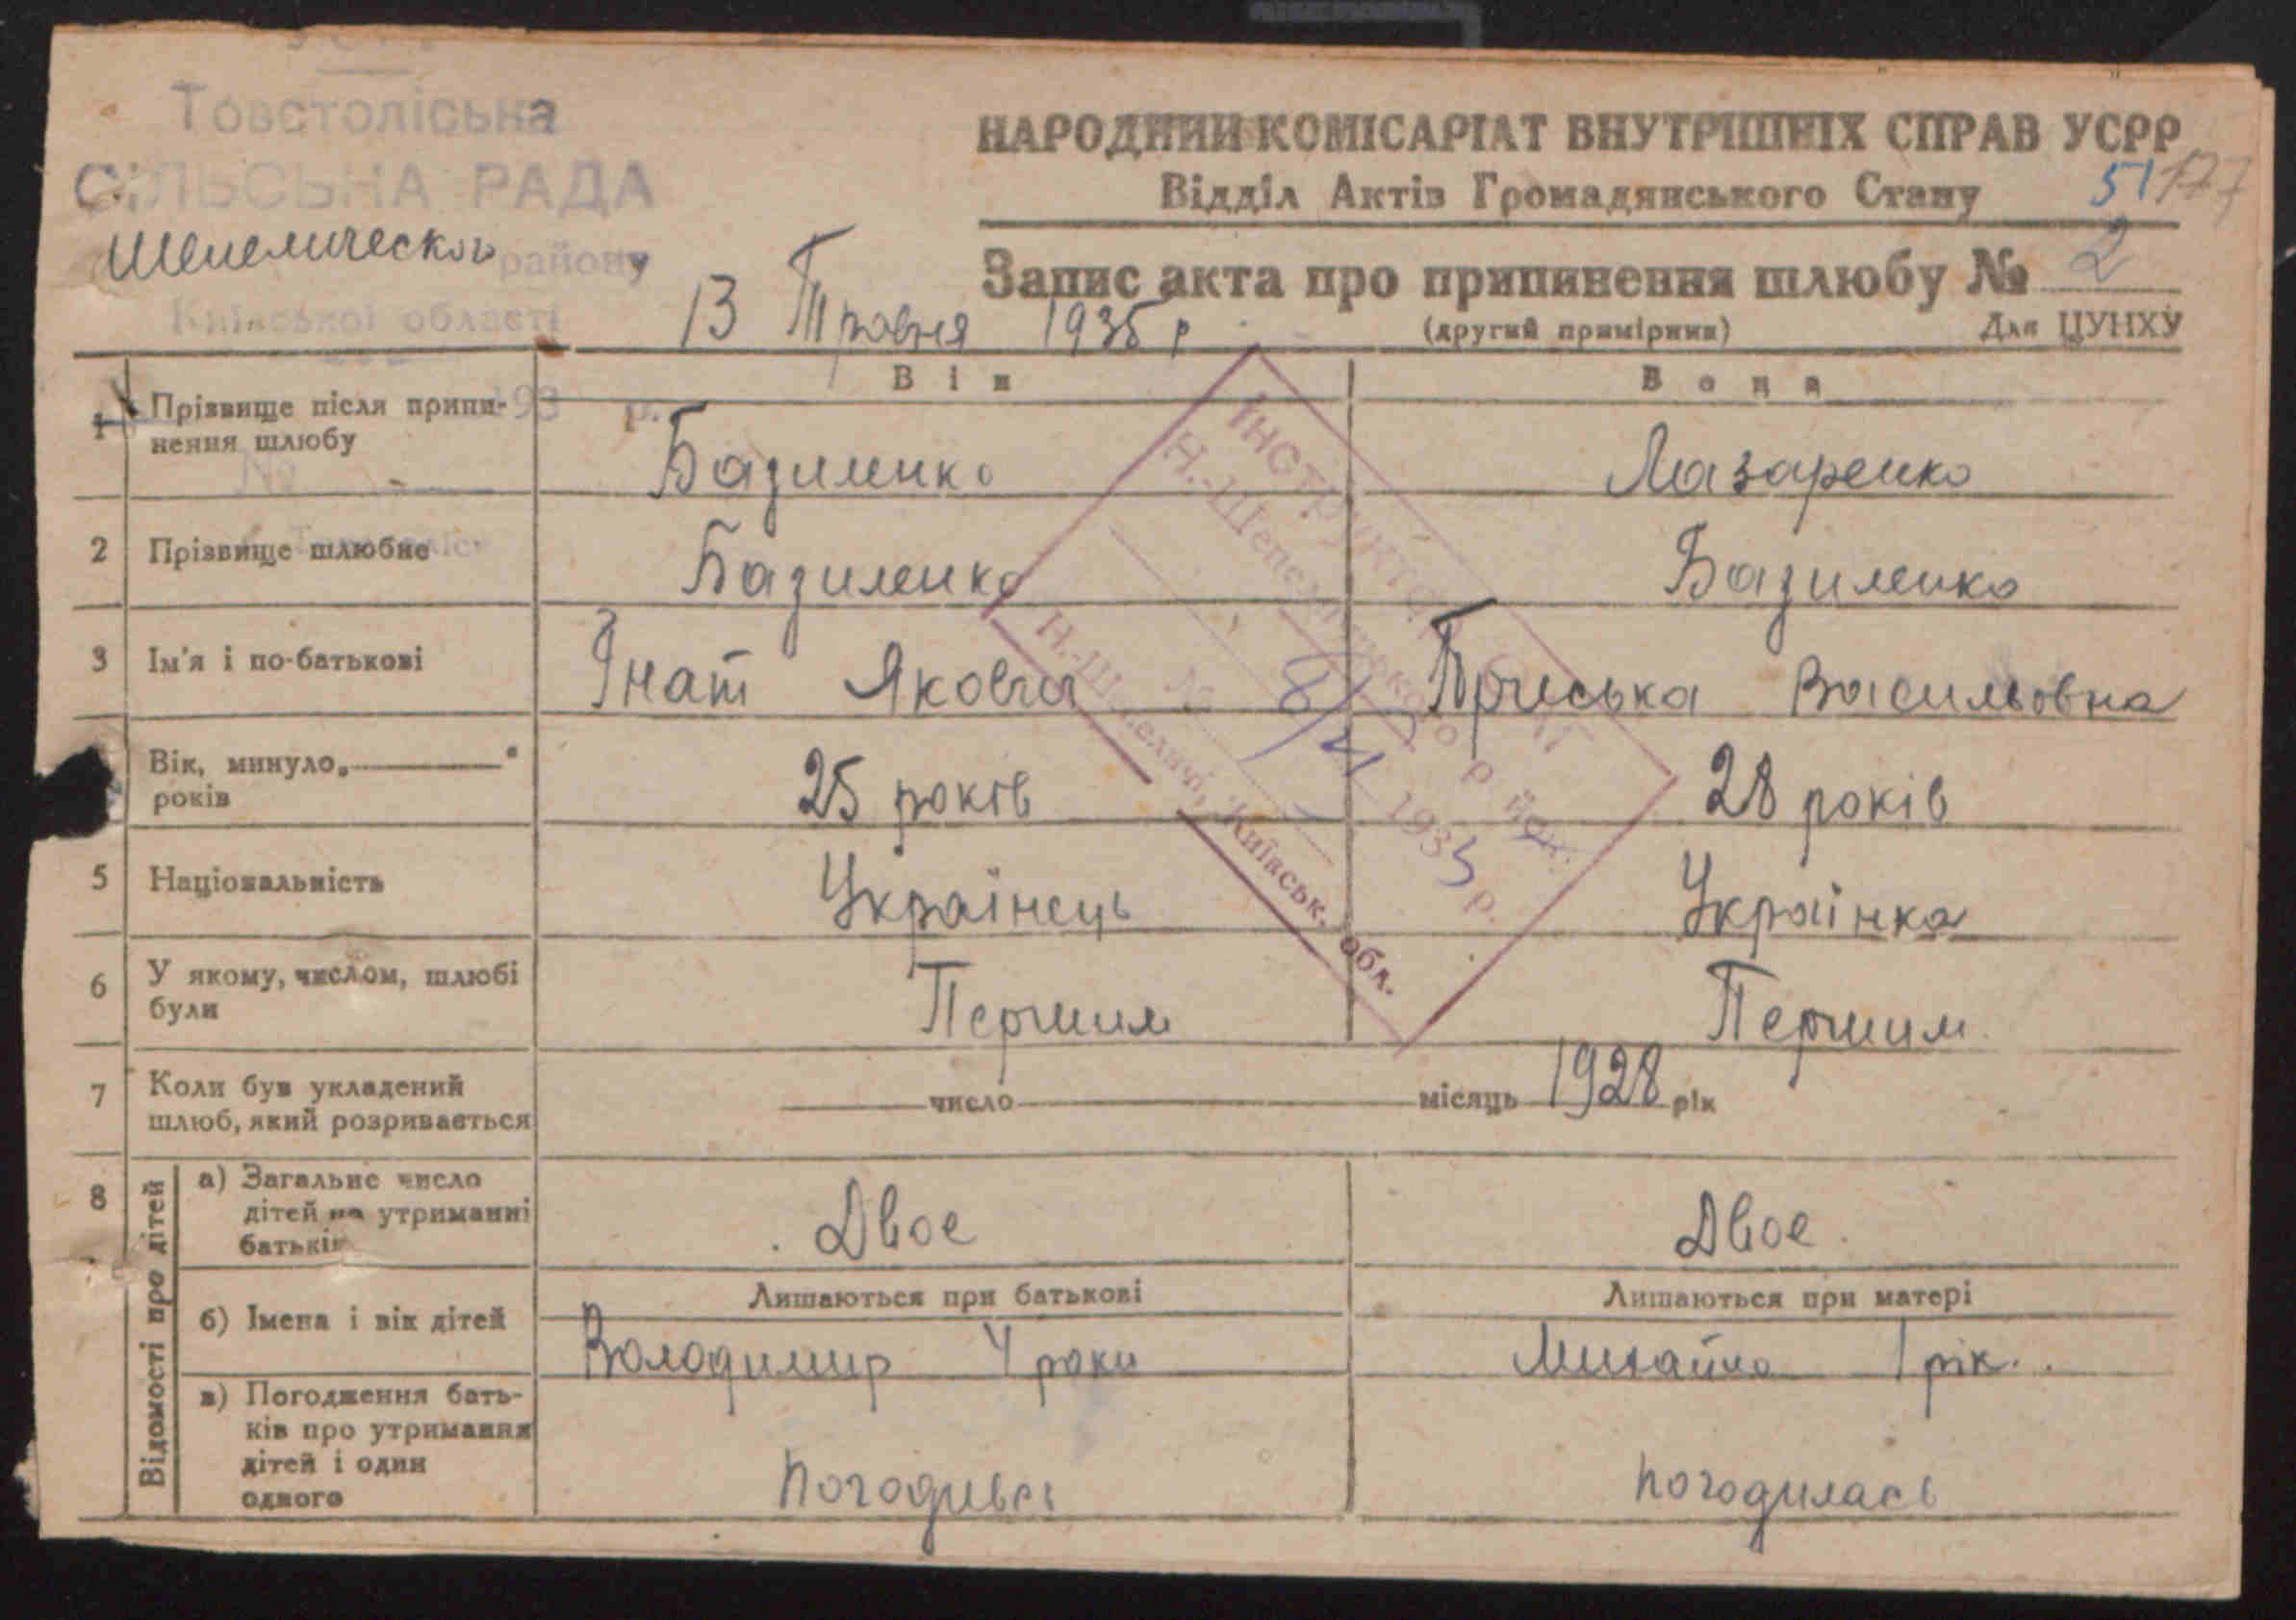 Товстоліська
СІЛЬСЬКА РАДА
Шепелического району
Київської області
193 р.
№
НАРОДНИЙ КОМІСАРІАТ ВНУТРІШНІХ СПРАВ УСРР
Відділ Актів Громадянського Стану
51 177
Запис акта про припинення шлюбу № 2
13 Травня 1935 р
(другий примірник) Для ЦУНХУ
Він Вона
1 Прізвище після припинення шлюбу Базиленко Лазаренко
2 Прізвище шлюбне Базиленко Базиленко
3 Ім'я і по-батькові Ігнат Якович Приська Васильовна
Вік, минуло „ " років 25 років 28 років
5 Національність Українець Українка
6 У якому, числом, шлюбі були Першим Першим
7 Коли був укладений шлюб, який розривається число місяць 1928 рік
8 Відомості про дітей
а) Загальне число дітей на утриманні батьків Двое Двое
Лишаються при батькові Лишаються при матері
б) Імена і вік дітей Володимир 4 роки Михайло 1 рік
в) Погодження батьків про утримання дітей і один одного Погодивсь Погодилась
Інструктор ЗАГС
Н.-Шепелицького район.
№ 8/VI 1935 р.
Н.-Шепеличі, Київськ. обл.